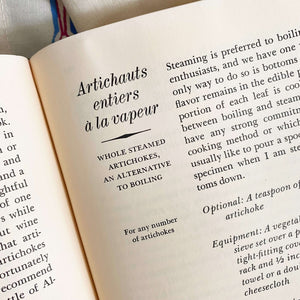 and
ghtful
and a
rs while
wine
hat arti-
ichokes
ortunately
ecommend
ttle of Al-
Artichauts
entiers
à la vapeur
WHOLE STEAMED
ARTICHOKES,
AN ALTERNATIVE
TO BOILING
For any number
of artichokes
Steaming is preferred to boiling
enthusiasts, and we have one
only way to do so is bottoms
flavor remains in the edible
portion of each leaf is cook
between boiling and steam
have any strong commit
cooking method or which
usually like to pour a spoo
specimen when I am ste
toms down.
Optional: A teaspoon of
artichoke
Equipment: A veget
sieve set over a p
tight-fitting cov
rack and ½ inc
towel or a dou
cheesecloth